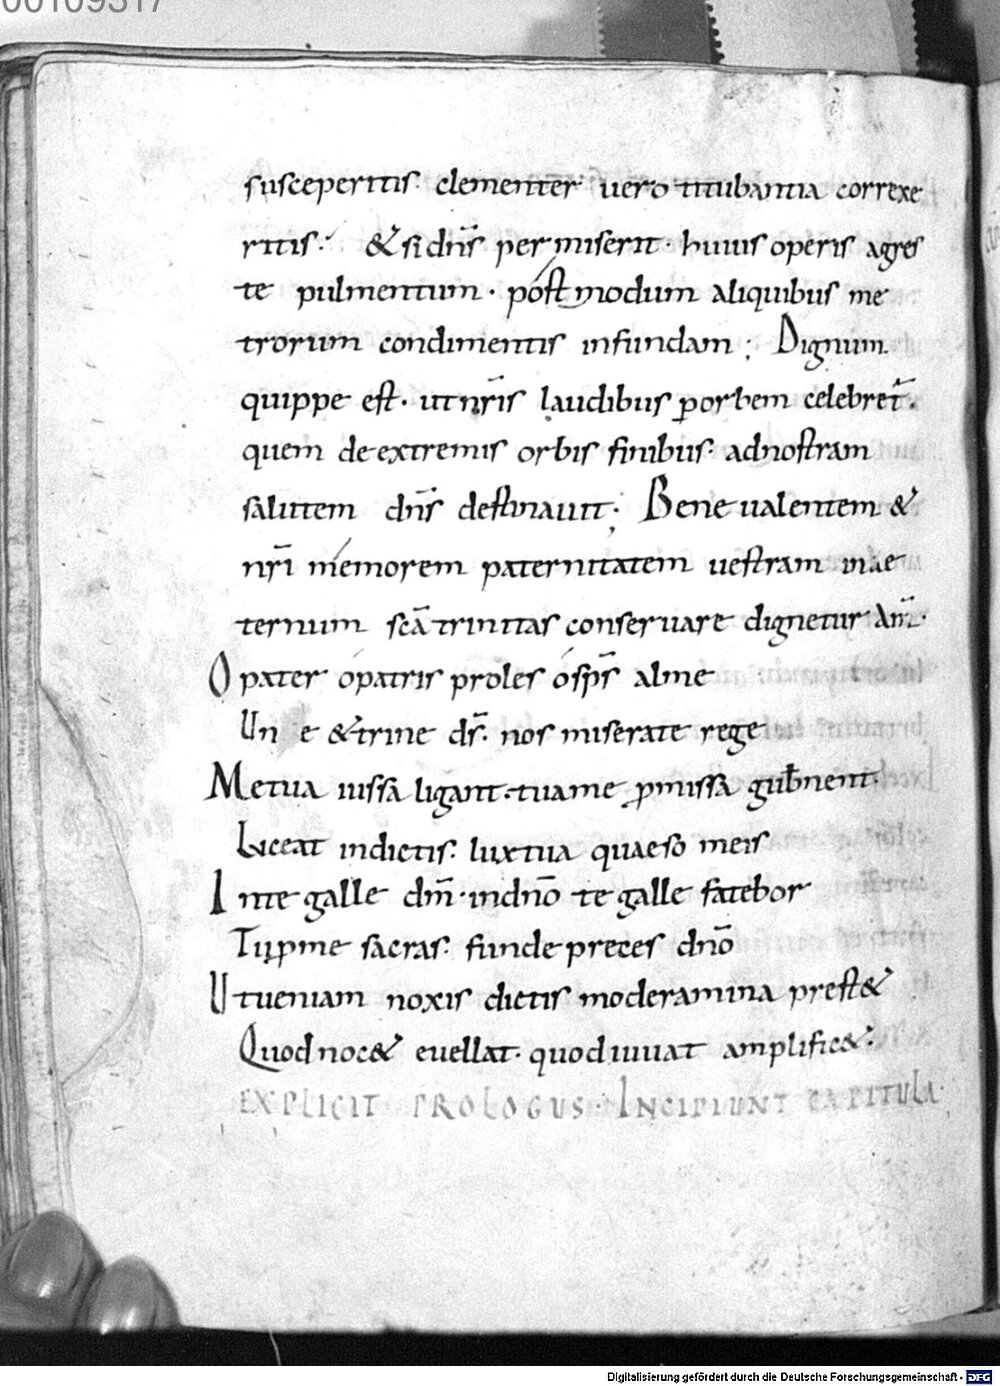 00109317
susceperitis· clementer uero titubantia correxe
ritis·́ & si dn̄s permiserit· huius operis agres
te pulmentum· póstmodum aliquibus me
trorum condimentis infundam; Dignum
quippe est· ut nr̄is laudibus ꝑ orbem celebret̄·
quem de extremis orbis finibus· ad nostram
salutem dn̄s destinauit; Bene ualentem &
nr̄i mémorem paternitatem uestram in ae
ternum sc̄a trinitas conseruare dignetur Am̄·
O pater ó patris proles ó sps̄ alme
Un e & trine ds̄· nos miserate rege
Me tua iussa ligant· tua me ꝓmissa gub̄nent·
Liceat indictis· lux tua quaeso meis
In te galle dm̄· in dn̄o te galle fatebor
Tu ꝓ me sacras· funde preces dn̄o
Ut ueniam noxis dictis moderamina prest&
Quod noc& euellat· quod iuuat amplific&·
EXPLICIT PROLOGUS· INCIPIUNT CAPITULA·
Digitalisierung gefördert durch die Deutsche Forschungsgemeinschaft - DFG